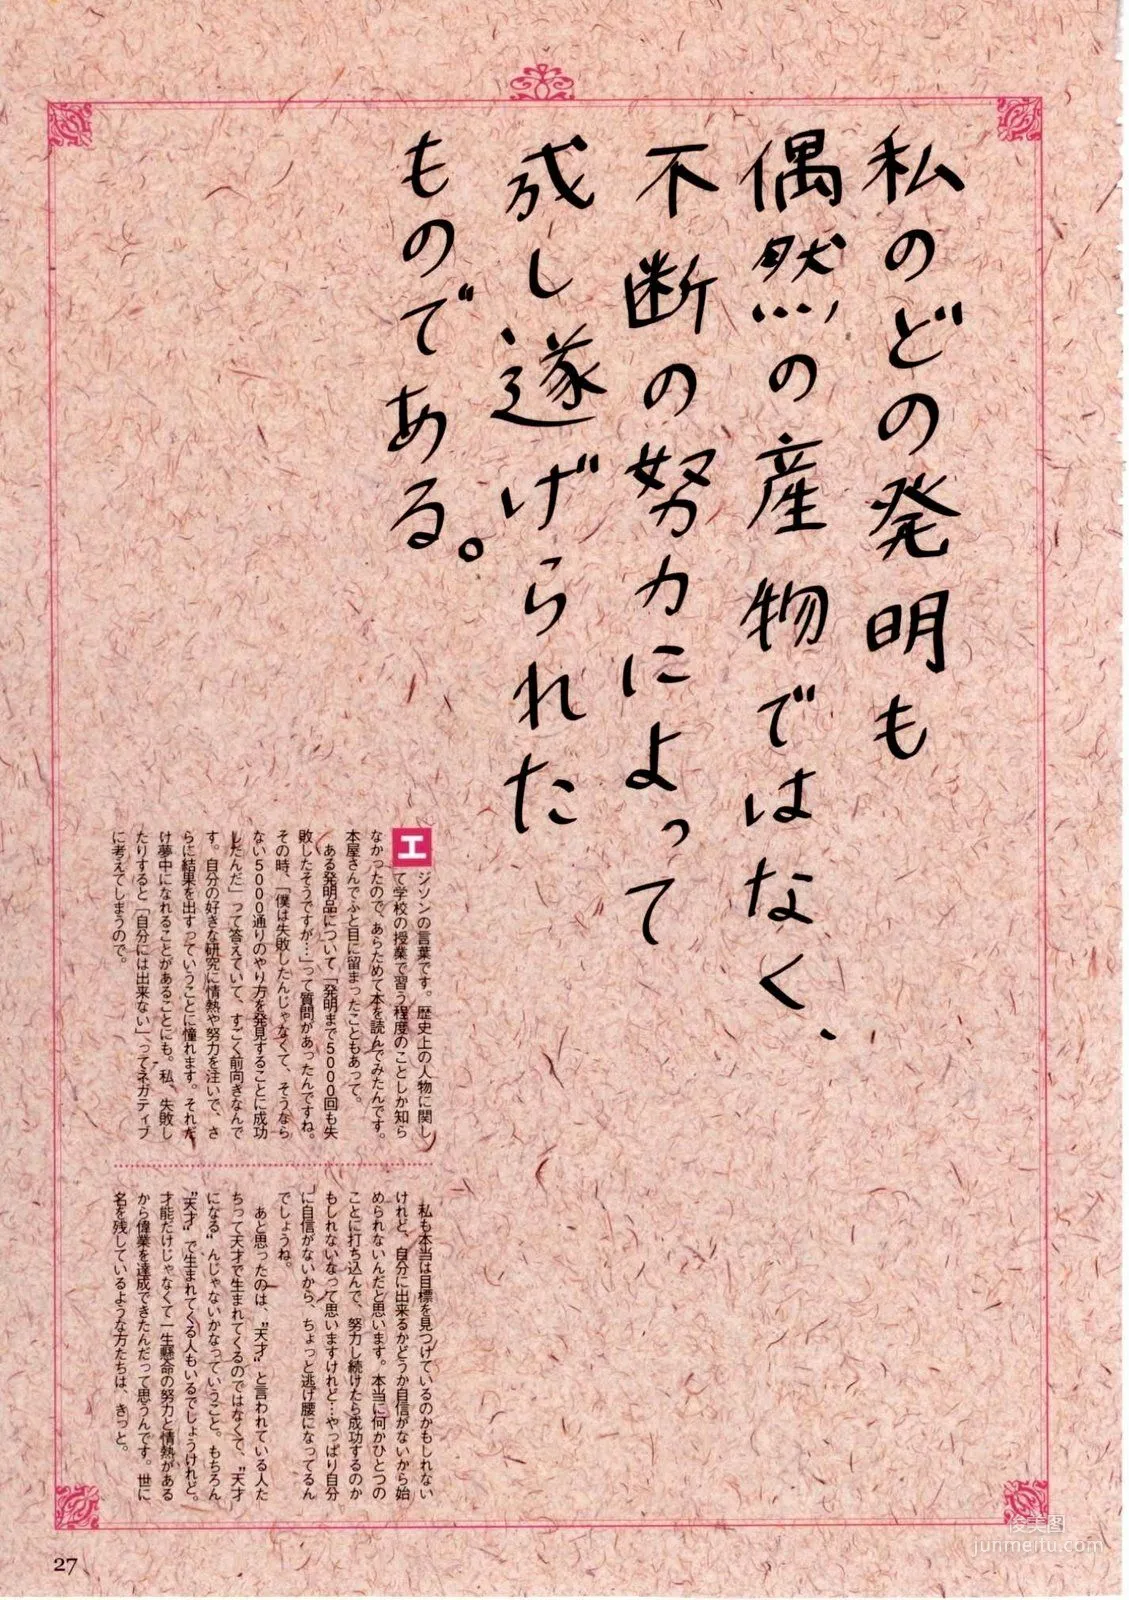 私のどの発明も
偶然の産物ではなく、
不断の努力によって
成し遂げられた
ものである。
エジソンの言葉です。歴史上の人物に関し
て学校の授業で習う程度のことしか知ら
なかったので、あらためて本を読んでみたんです。
本屋さんでふと目に留まったこともあって。
ある発明品について「発明まで5000回も失
敗したそうですが…」って質問があったんですね。
その時、「僕は失敗したんじゃなくて、そうなら
ない5000通りのやり方を発見することに成功
したんだ」って答えていて、すごく前向きなんで
す。自分の好きな研究に情熱や努力を注いで、さ
らに結果を出すっていうことに憧れます。それだ
け夢中になれることがあることにも。私、失敗し
たりすると「自分には出来ない」、ってネガティブ
に考えてしまうので。
私も本当は目標を見つけているのかもしれない
けれど、自分に出来るかどうか自信がないから始
められないんだと思います。本当に何かひとつの
ことに打ち込んで、努力し続けたら成功するのか
もしれないなって思いますけれど…やっぱり自分
に自信がないから、ちょっと逃げ腰になってるん
でしょうね。
あと思ったのは、"天才"と言われている人た
ちって天才で生まれてくるのではなくて、"天才
になる"んじゃないかなっていうこと。もちろん
"天才"で生まれてくる人もいるでしょうけれど。
才能だけじゃなくて一生懸命の努力と情熱がある
から偉業を達成できたんだって思うんです。世に
名を残しているような方たちは、きっと。
27
俊美图
junmeitu.com